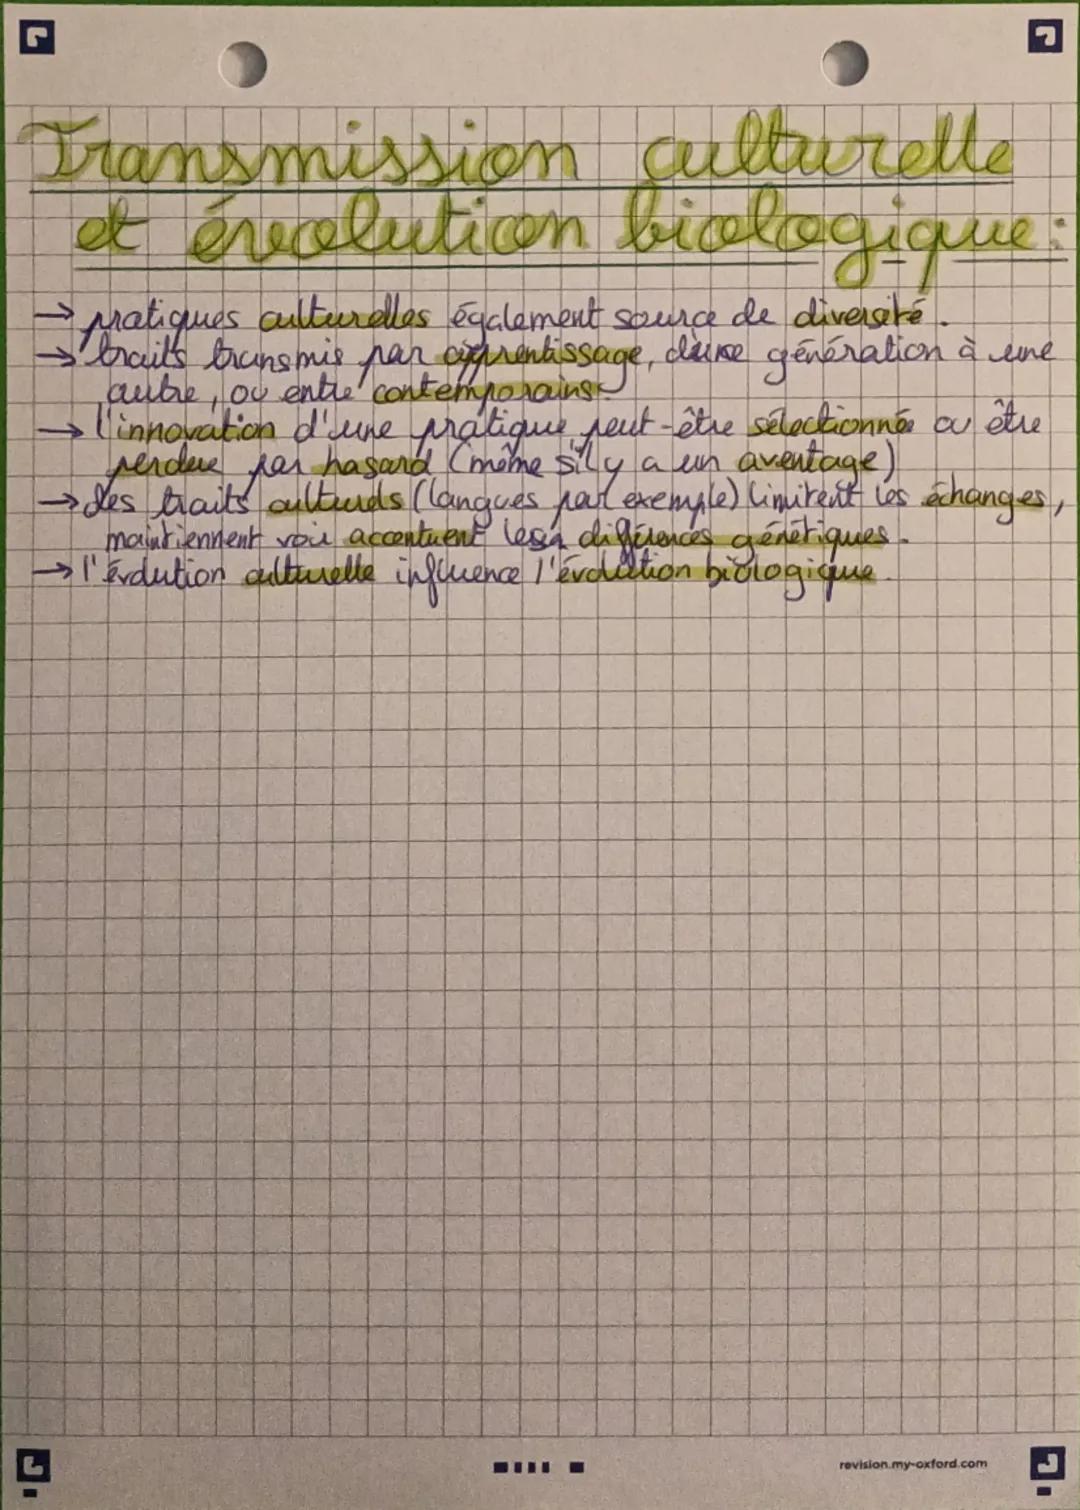 Transmission culturelle
et évolution biologique :
→ pratiques culturelles également source de diversité.
→ traits transmis par apprentissage, d'une génération à une
autre, ou entre contemporains.
→ l'innovation d'une pratique peut-être sélectionnée ou être
perdue par hasard (même s'il y a un aventage)
→ des traits culturels (langues par exemple) limitent les échanges,
maintiennent voir accentuent les différences génétiques.
→ l'évolution culturelle influence l'évolution biologique.
revision.my-oxford.com